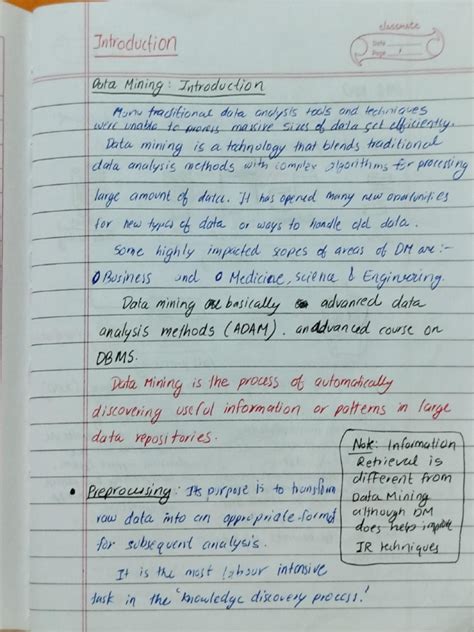 Introduction
classmate
Date
Page 1
Data Mining: Introduction
Many traditional data analysis tools and techniques
were unable to process massive sizes of data set efficiently.
Data mining is a technology that blends traditional
data analysis methods with complex algorithms for processing
large amount of data. It has opened many new oportunities
for new types of data or ways to handle old data.
Some highly impacted scopes of areas of DM are:-
Business and Medicine, Science & Engineering
Data mining are basically advanced data
analysis methods (ADAM), an advanced course on
DBMS.
Data Mining is the process of automatically
discovering useful information or patterns in large
data repositories.
• Preprocessing: Its purpose is to transform
raw data into an appropriate format
for subsequent analysis.
It is the most labour intensive
task in the 'knowledge discovery process.'
Note: Information
Retrieval is
different from
Data Mining
although DM
does help
IR techniques